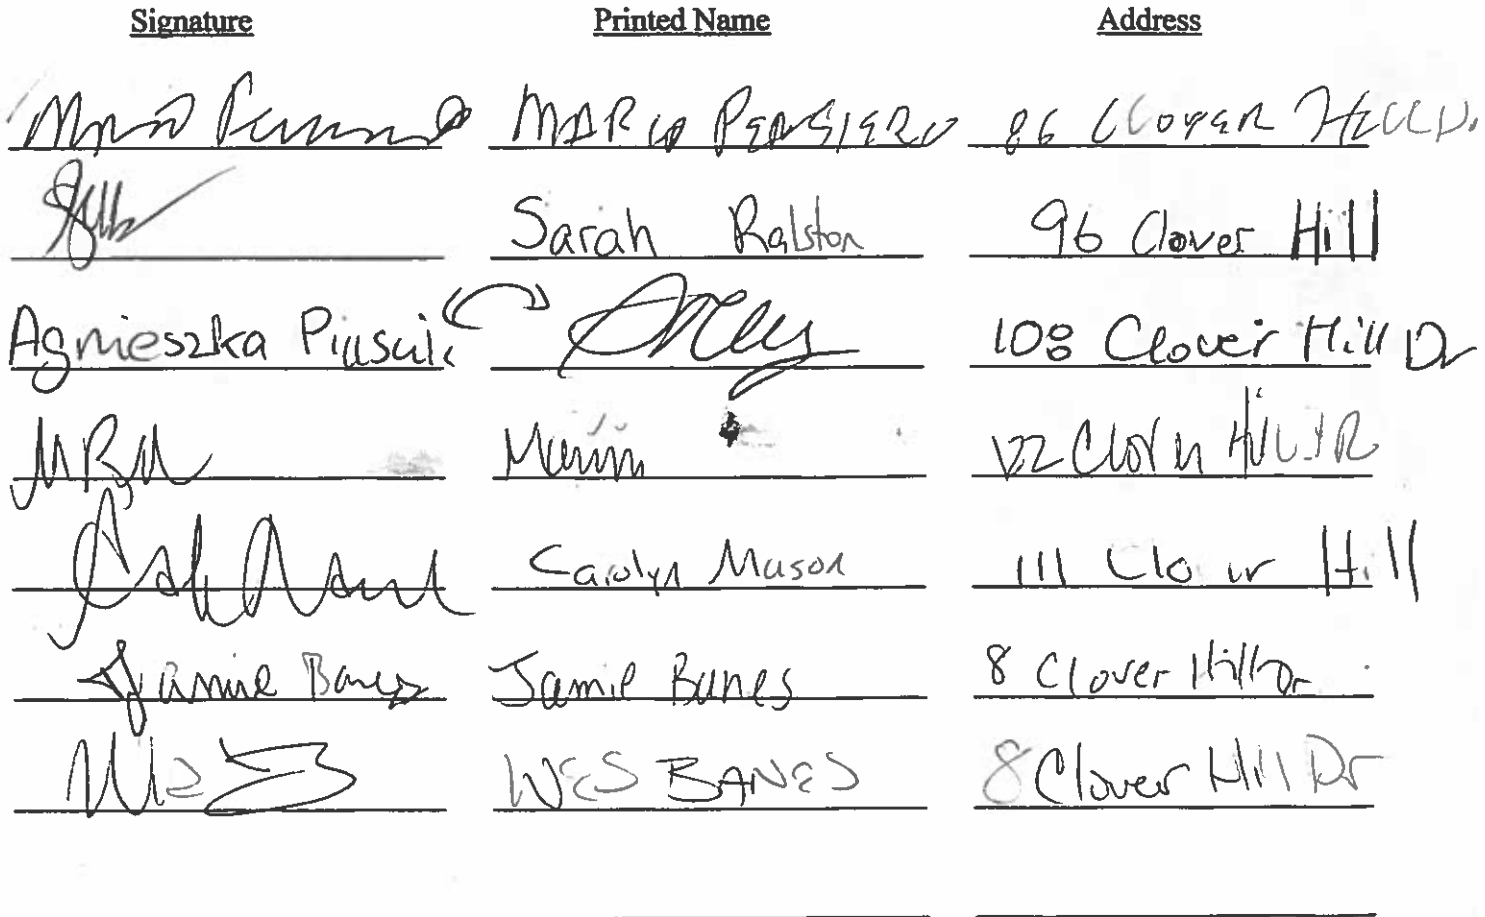 Signature Printed Name Address
MARCO PENSIERO 86 CLOVER HILL D.
Sarah Ralston 96 Clover Hill
Agnieszka 108 Clover Hill Dr
122 Clover Hill DR
Carolyn Mason 111 Clover Hill
Jamie Banes Jamie Banes 8 Clover Hill Dr
Wes WES BANES 8 Clover Hill Dr